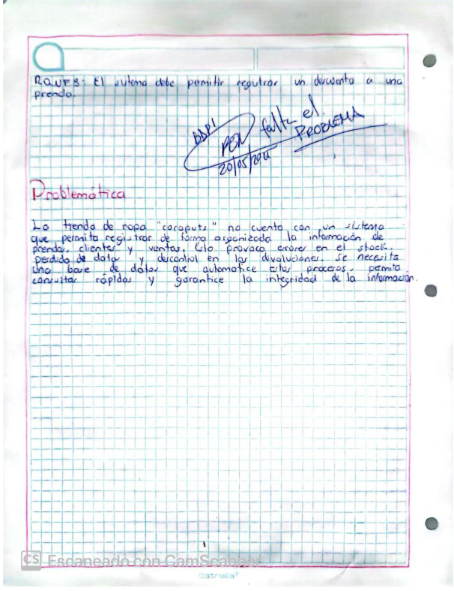 RQNF8: El sistema debe permitir registrar un descuento a una
prenda.
falta el
PROBLEMA
20/05/2025
Problemática
La tienda de ropa "caraputs" no cuenta con un sistema
que permita registrar de forma organizada la información de
prendas, clientes y ventas. Esto provoca errores en el stock,
perdida de datos y descontrol en las devoluciones. Se necesita
una base de datos que automatice estos procesos, permita
consultas rápidas y garantice la integridad de la información.
CS Escaneado con CamScanner